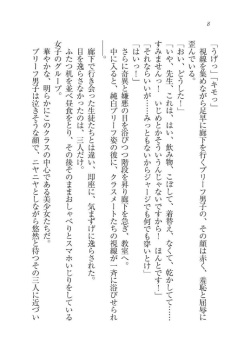 8
「うげっ」「キモっ」
視線を集めながら足早に廊下を行くブリーフ男子の、その顔は赤く、羞恥と屈辱に
歪んでいる。
「おい、どうした」
「いや、先生、これは、あ、飲み物、こぼして、着替え、なくて、乾かしてて……
すみませんっ！ いじめとかそういうんじゃないですから！ ほんとです！」
「それならいいが……みっともないからジャージでも何でも穿いとけ」
「は、はいっ」
さらに奇異と嫌悪の目を浴びつつ階段を昇り廊下を急ぎ、教室へ。
中に入ると、純白ブリーフ姿の彼に、クラスメートたちの視線が一斉に浴びせられ
た。
廊下で行き会った生徒たちとは違い、即座に、気まずげに逸らされる。
目を逸らさなかったのは、三人だけだ。
ふたつ机を並べ昼食をとり、その後そのままおしゃべりとスマホいじりをしている
女子のグループ。
華やかな、明らかにこのクラスの中心である美少女たちだ。
ブリーフ男子は泣きそうな顔で、ニヤニヤとしながら悠然と待つその三人に近づい